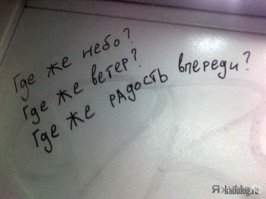 Где же небо?
Где же ветер?
Где же рАдость впереди?
Я kaifolog.ru